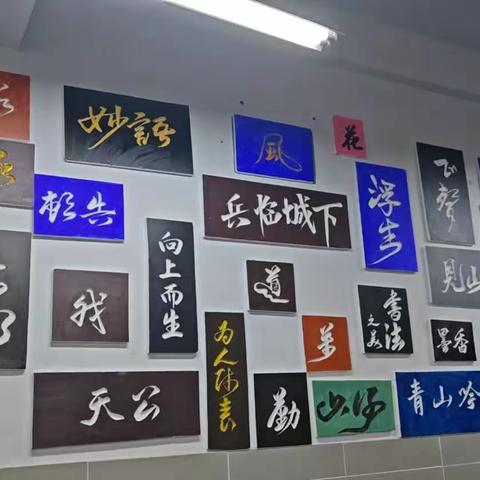 妙語
風
花
飞声
顏告
兵临城下
浮生
向上而生
道
見山
我
书法
墨香
为人师表
天公
勤
山河
青山吟